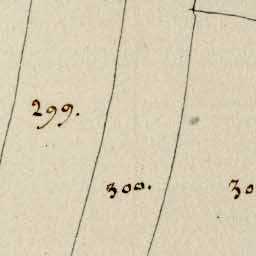 299.
300.
30